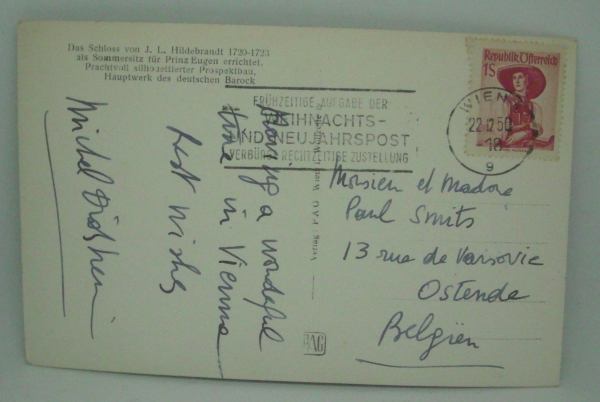 Das Schloss von J. L. Hildebrandt 1720-1723
als Sommersitz für Prinz Eugen errichtet.
Prachtvoll silhouettierter Prospektbau,
Hauptwerk des deutschen Barock
Having a wonderful
time in Vienna
Best wishes
Michel
Verlag: PAG Wien
PAG
FRÜHZEITIGE AUFGABE DER
WEIHNACHTS-
UND NEUJAHRSPOST
VERBÜRGT RECHTZEITIGE ZUSTELLUNG
WIEN
22.12.50
18
9
Republik Österreich
1S
Monsieur et Madame
Paul Smits
13 rue de Varsovie
Ostende
Belgien